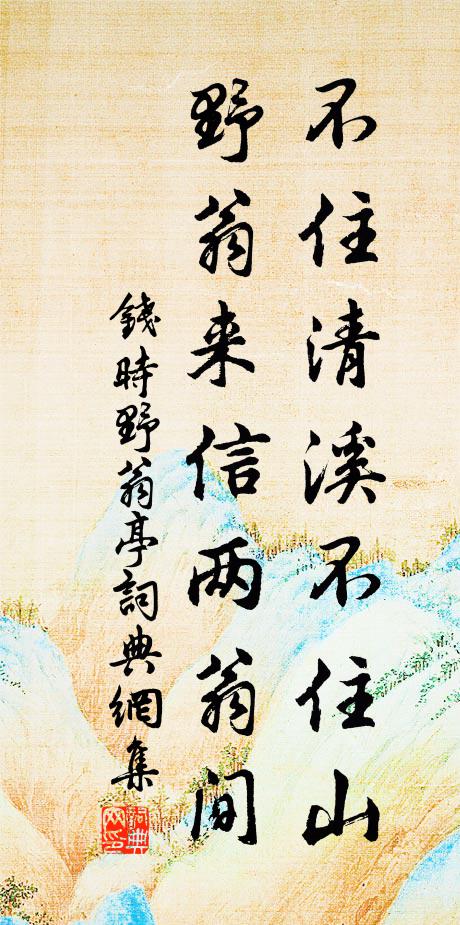 不住清溪不住山
野翁来信两翁间
錢時野翁亭詞典網集
詞典
网印